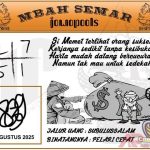 MBAH SEMAR
jonopools
Si Memet terlihat orang sukses
Kerjanya sedikit tanpa kesibukan
Harta mudah datang bercucuran
Namun tak mau untuk sedekah
7
AGUSTUS 2025
JALUR UANG : SUBULUSSALAM
BINATANGNYA : PELARI CEPAT